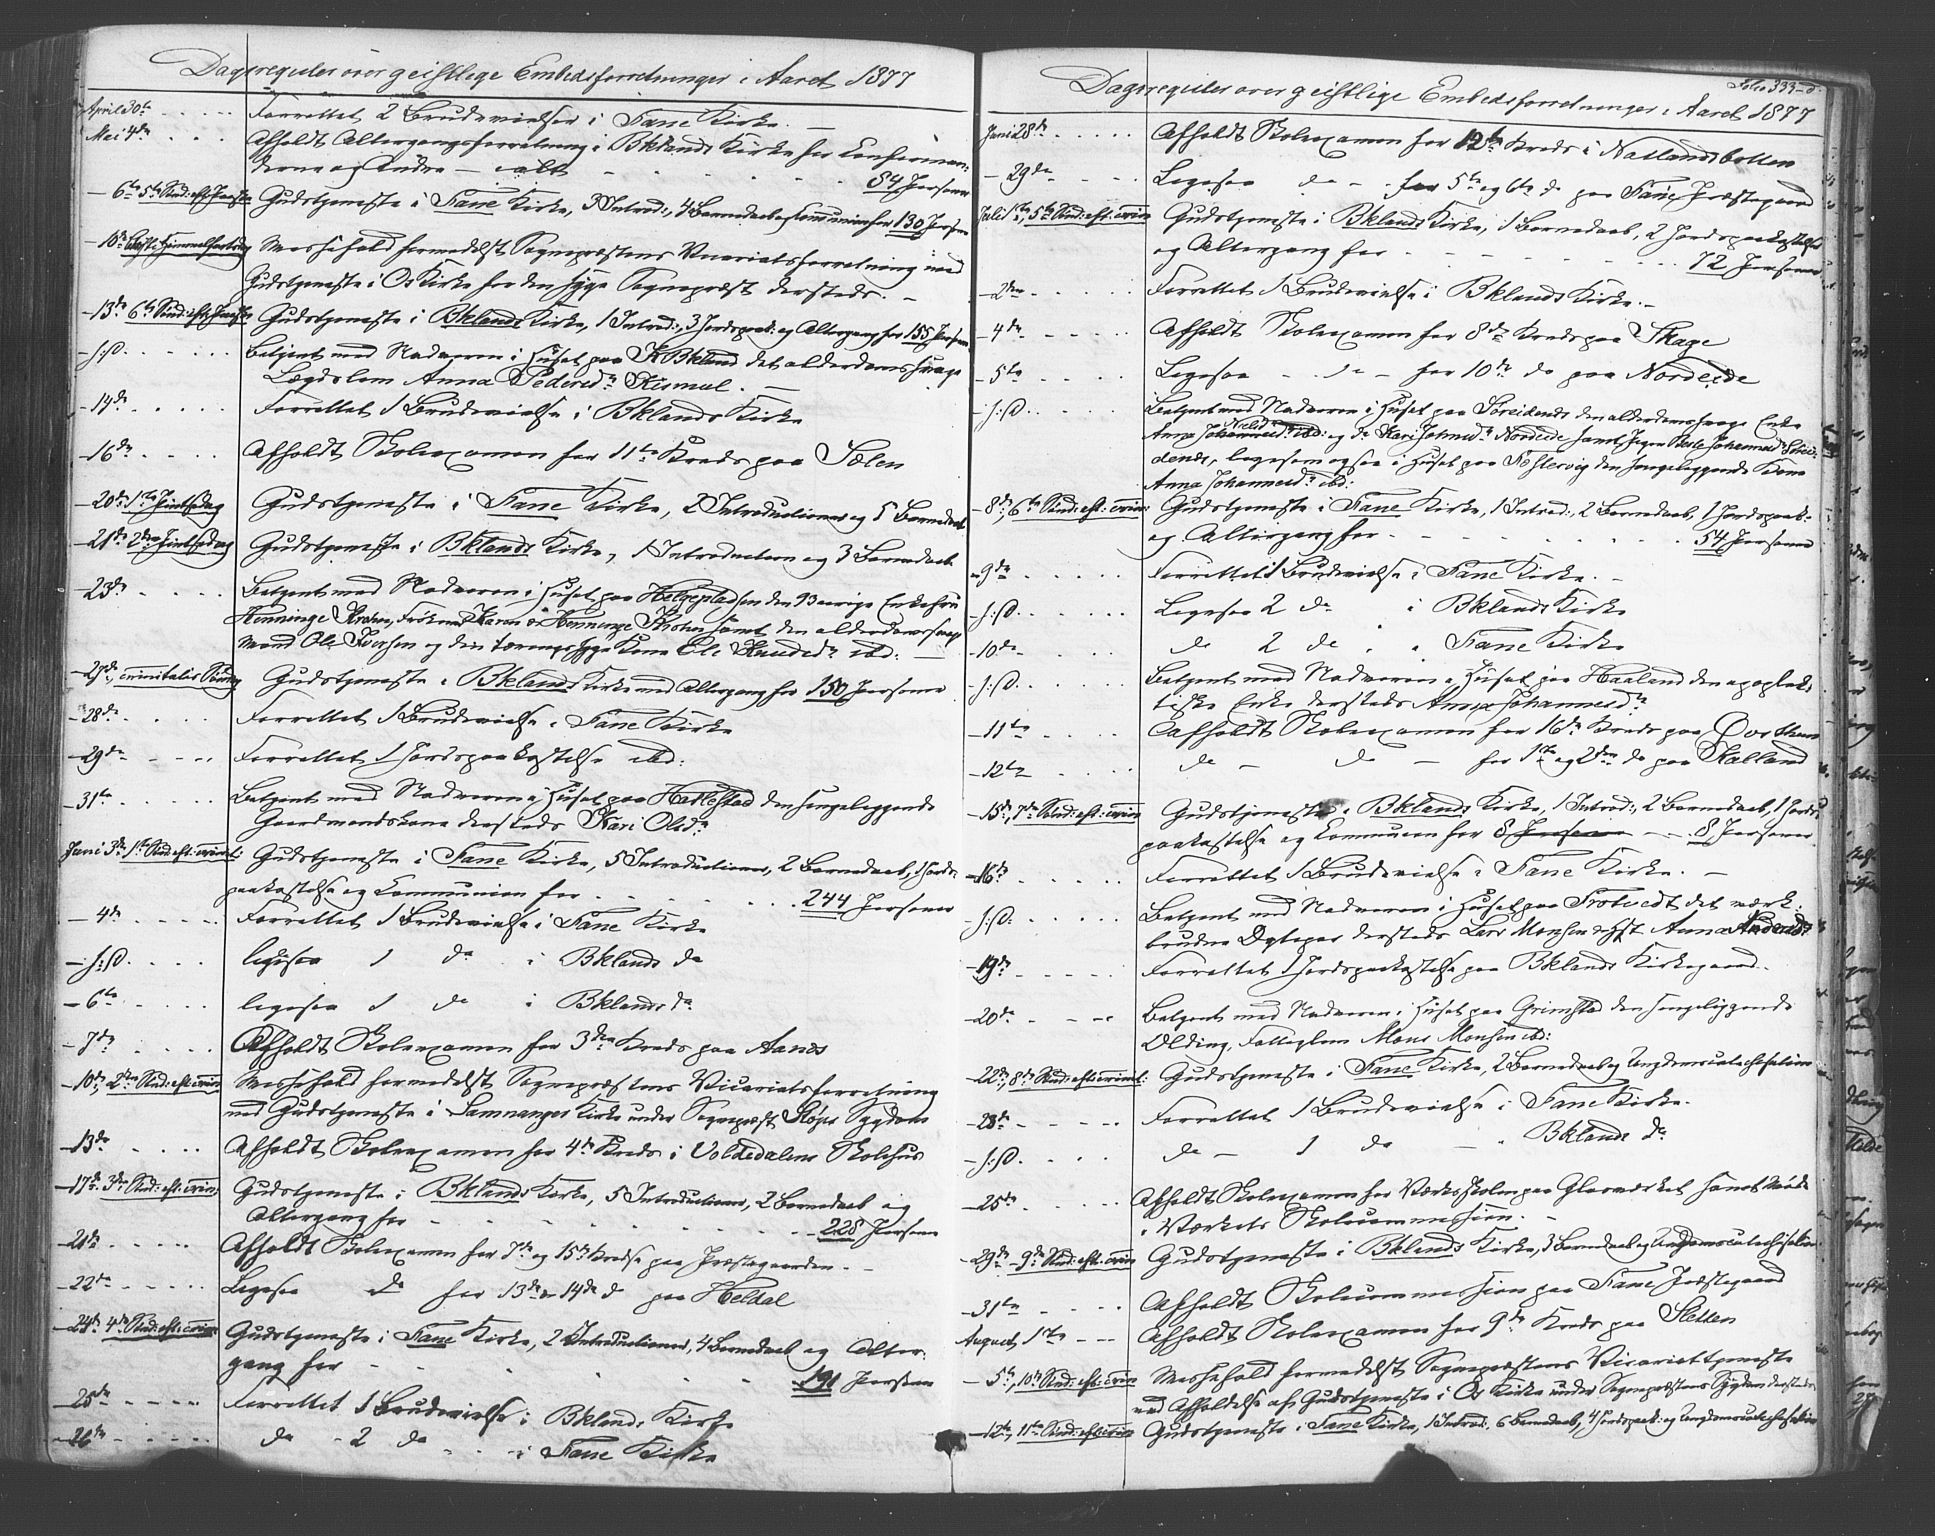 Dagsregister over geistlige Embedsforretninger i Aaret 1877
April 30te Forrettet 2 Brudevielser i Fane Kirke.
Mai 4de Afholdt Altergangsforretning i Bklands Kirke for Confirman-
derne og Andre – ialt 84 Personer
– 6te 5te Sönd: eft: Paaske Gudstjeneste i Fane Kirke, 3 Introd:, 4 Barnedaab og Communion for 130 Person
– 10de Christi Himmelfartsdag Messefald formedelst Sognepræstens Vicariatsforretning med
Gudstjeneste i Os Kirke for den syge Sognepræst dersteds. –
– 13de 6te Sönd: eft: Paaske Gudstjeneste i Bklands Kirke, 1 Introd:, 3 Jordspaak: og Altergang for 155 Person
– s: D. Betjent med Nadveren i Huset paa Bkland det alderdomssvage
Lægdslem Anna Pedersdr
– 14de Forrettet 1 Brudevielse i Bklands Kirke
– 16de Afholdt Skoleexamen for 11te Kreds paa Sælen
– 20de 1ste Pintsedag Gudstjeneste i Fane Kirke, 2 Introductioner og 5 Barnedaab
– 21de 2den Pintsedag Gudstjeneste i Bklands Kirke, 1 Introduction og 3 Barnedaab
– 23de Betjent med Nadveren i Huset paa Helgepladsen den 93 aarige Enkefru
Henninge Krohn, Frökenerne Karen & Henninge Krohn samt den alderdomssvage
Mand Ole Iversen og den tæringssyge Kone Ole Knudsdr ibd: –
– 27de, trinitatis Söndag Gudstjeneste i Bklands Kirke med Altergang for 150 Personer
– 28de Forrettet 1 Brudevielse i Fane Kirke
– 29de Forrettet 1 Jordspaakastelse ibd:
– 31te Betjent med Nadveren i Huset paa Hatlestad den sengeliggende
Gaardmandskone dersteds Kari Olsdr
Juni 3de 1ste Sönd: eft: trinit: Gudstjeneste i Fane Kirke, 5 Introductioner, 2 Barnedaab, 1 Jords-
paakastelse og Communion for 244 Personer
– 4de Forrettet 1 Brudevielse i Fane Kirke
– s: D. ligesaa 1 do i Bklands do
– 6te ligesaa 1 do i Bklands do
– 7de Afholdt Skoleexamen for 3die Kreds paa Aanes
– 10de, 2den Sönd: eft: trin: Messefald formedelst Sognepræstens Vicariatsforretning
med Gudstjeneste i Samnanger Kirke under Sognepræst Sygdom
– 13de Afholdt Skoleexamen for 4de Kreds i Voldedalens Skolehus
– 17de 3die Sönd: eft: trin: Gudstjeneste i Bklands Kirke, 5 Introductioner, 2 Barnedaab og
Altergang for 228 Personer
– 21de Afholdt Skoleexamen for 7de og 15de Kredse paa Præstegaarden. –
– 22de Ligesaa do for 13de & 14de do paa Heldal
– 24de 4de Sönd: eft: trin: Gudstjeneste i Fane Kirke, 2 Introductioner, 4 Barnedaab og Alter-
gang for 191 Personer
– 25de Forrettet 1 Brudevielse i Bklands Kirke
– 26de do 2 do i Fane Kirke
Folio 333
Dagsregister over geistlige Embedsforretninger i Aaret 1877
Juni 28de Afholdt Skoleexamen for 12te Kreds i Natlandsbotten
– 29de Ligesaa do – for 5te og 6te do paa Fane Præstegaard
Juli 1ste, 5te Sönd: eft: trin: Gudstjeneste i Bklands Kirke, 1 Barnedaab, 2 Jordspaakastelser
og Altergang for 72 Personer
– 2den Forrettet 1 Brudevielse i Bklands Kirke. –
– 4de Afholdt Skoleexamen for 8de Kreds paa Skage
– 5te Ligesaa – do – for 10de do paa Nordeide
– s: D. Betjent med Nadveren i Huset paa Söreidenes den alderdomssvage Enke
Anna Johannesdr ibd: og do Kari Johnsdr Nordeide samt Pigen Johannesdr Sörei-
denes, ligesom ogsaa i Huset paa Hestervig den sengeliggende Kone
Anna Johannesdr ibd:
– 8de, 6te Sönd: eft: trin: Gudstjeneste i Fane Kirke, 1 Introd:, 2 Barnedaab, 1 Jordspaak-
og Altergang for 54 Personer
– 9de Forrettet 1 Brudevielse i Fane Kirke. –
– s: D. Ligesaa 2 do i Bklands Kirke
– 10de do 2 do i Fane Kirke
– s: D. Betjent med Nadveren i Huset paa Haaland den apoplek-
tiske Enke dersteds Anna Johannesdr
– 11te Afholdt Skoleexamen for 16de Kreds paa
– 12te do – do – for 1ste og 2den do paa Kalland
– 15de, 7de Sönd: eft: trin: Gudstjeneste i Bklands Kirke, 1 Introd:, 2 Barnedaab, 1 Jords-
paakastelse og Communion for 8 Personer – 8 Personer
– 16de Forrettet 1 Brudevielse i Fane Kirke. –
– s: D: Betjent med Nadveren i Huset paa Trotvedt det værk-
brudne Ægtepar dersteds Lars Monsen & Hst Anna Andersdr
– 19de Forrettet 1 Jordspaakastelse paa Bklands Kirkegaard.
– 20de Betjent med Nadveren i Huset paa Grimstad den sengeliggende
Olding, Fattiglem Mons Monsen ibd:
– 22de, 8de Sönd: eft: trinit: Gudstjeneste i Fane Kirke, 2 Barnedaab og Ungdomscatechisation
– 23de Forrettet 1 Brudevielse i Fane Kirke.
– s: D. do – 1 do – i Bklands do
– 25de Afholdt Skoleexamen for Værksskolen paa Glasværket samt Möde
i Værkets Skolecommission. –
– 29de – 9de Sönd: eft: trin Gudstjeneste i Bklands Kirke, 3 Barnedaab og Ungdomscatechisation.
– 31te Afholdt Skolecommission paa Fane Præstegaard
August 1ste Afholdt Skoleexamen for 9de Kreds paa Sletten
– 5te, 10de Sönd: eft: trin Messefald formedelst Sognepræstens Vicariattjeneste
med Afholdelse af Gudstjeneste i Os Kirke under Sognepræstens Sygdom dersteds
– 12te, 11te Sönd: eft: trin Gudstjeneste i Fane Kirke, 1 Introd:, 6 Barnedaab, 4 Jordspaak: og Ungdomscatechisation